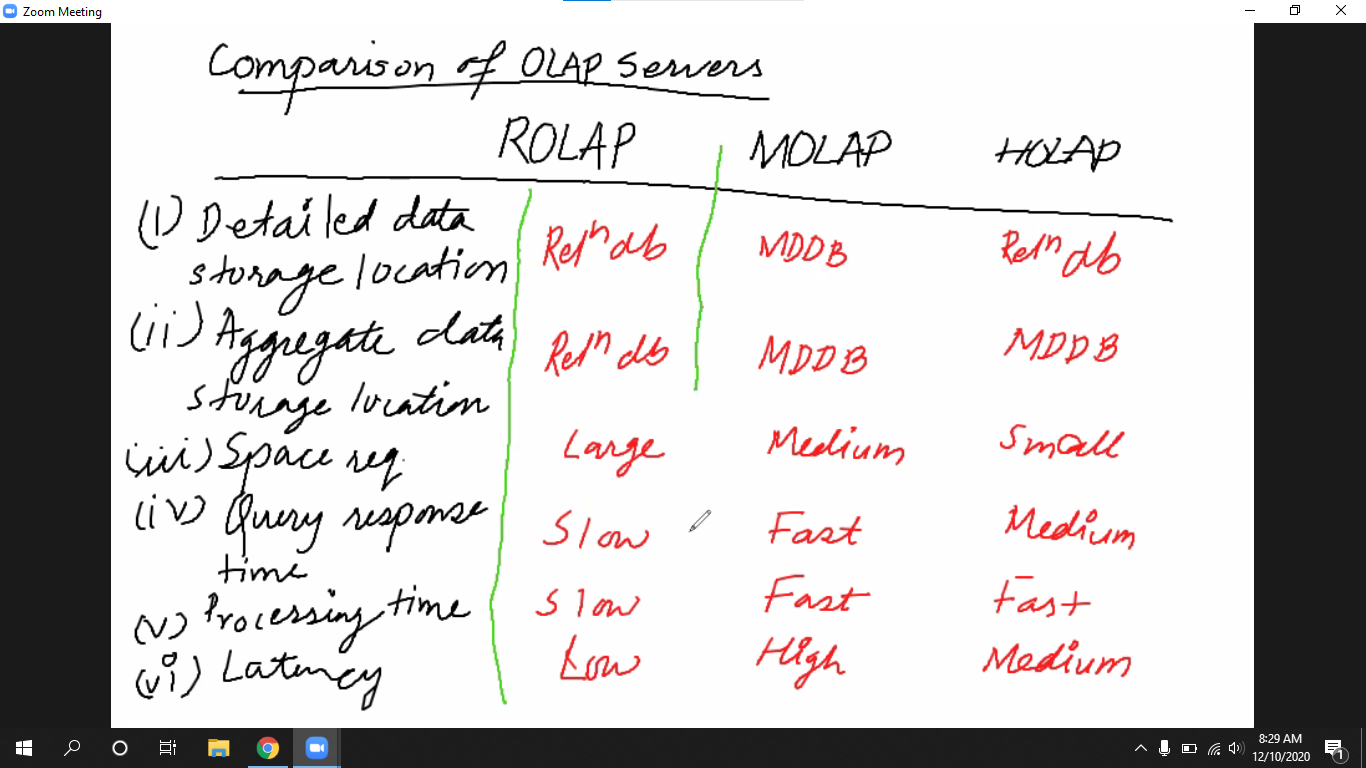 Zoom Meeting
Comparison of OLAP Servers
ROLAP MOLAP HOLAP
(i) Detailed data
storage location Relⁿ db MDDB Relⁿ db
(ii) Aggregate data
storage location Relⁿ db MDDB MDDB
(iii) Space req. Large Medium Small
(iv) Query response
time Slow Fast Medium
(v) Processing time Slow Fast Fast
(vi) Latency Low High Medium
8:29 AM
12/10/2020
1